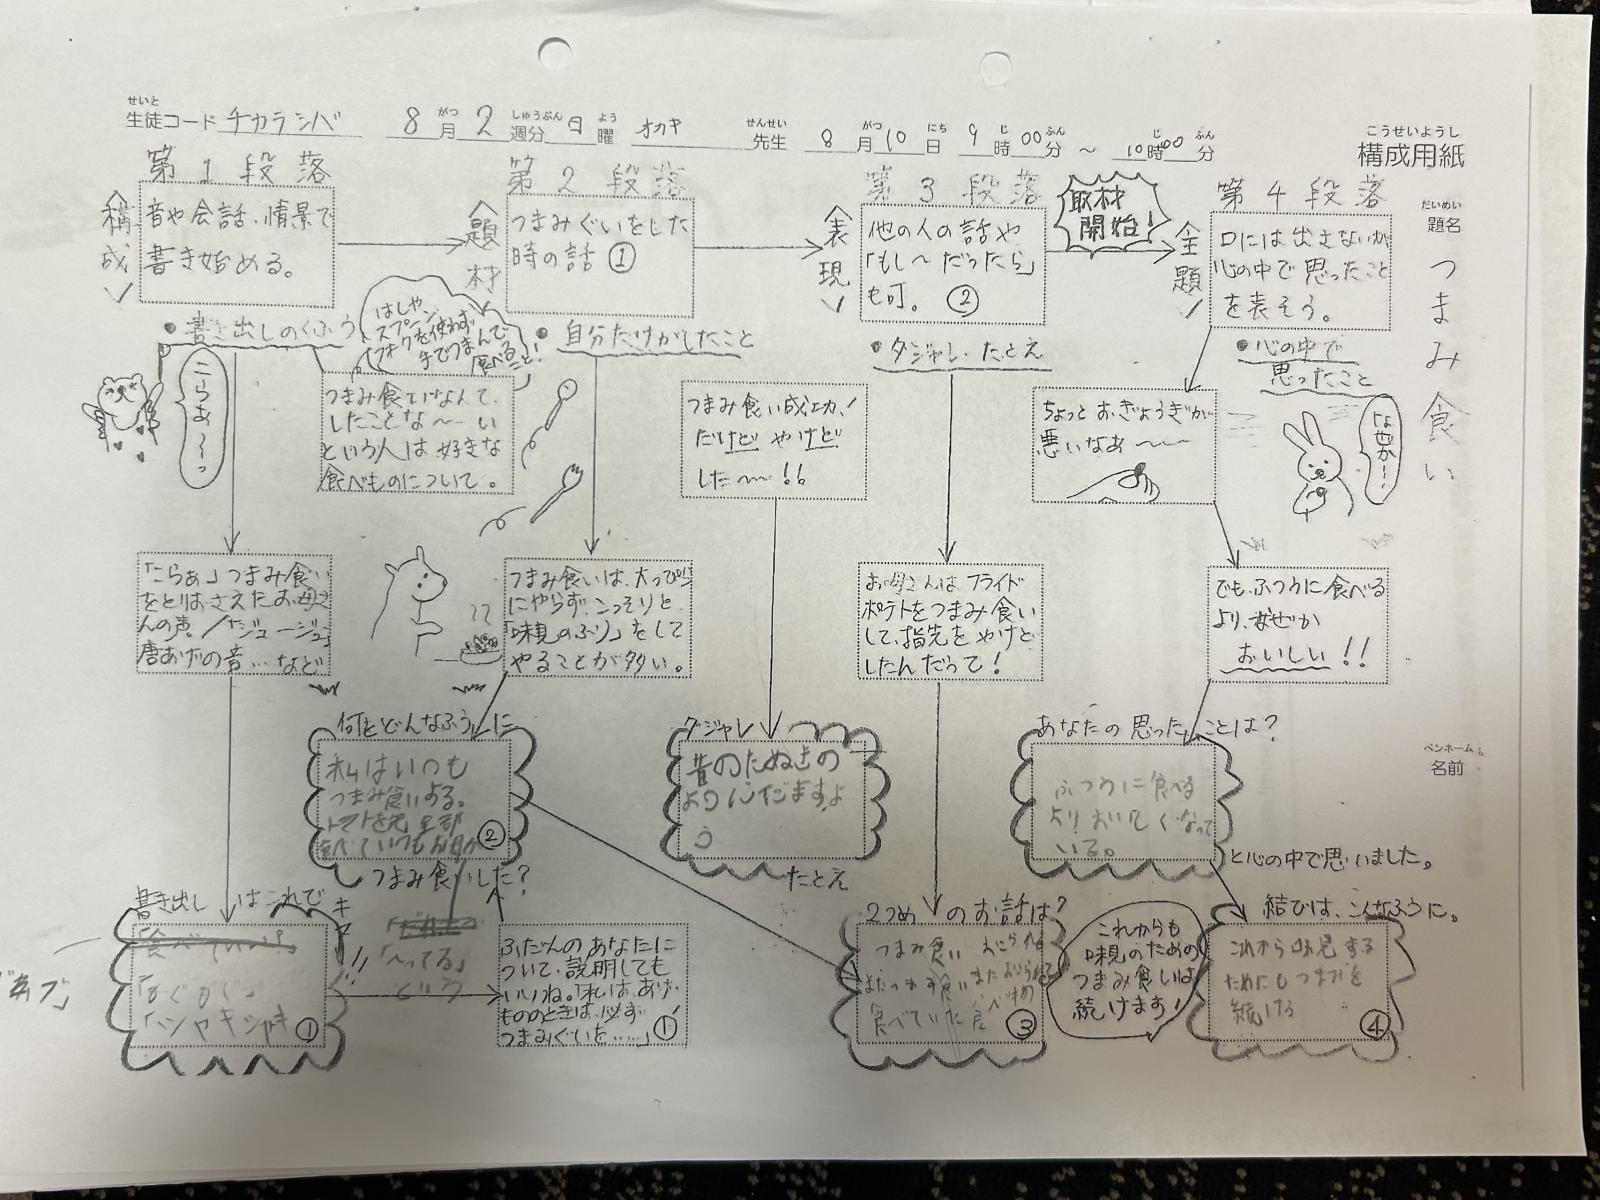 せいと
生徒コード チカラシバ 8月 2週分 日曜 オカキ 先生 8月10日 9時00分 ~ 10時00分
がつ しゅうぶん よう せんせい がつ にち じ ふん じ ふん
こうせいようし
構成用紙
だいめい
題名
つまみ食い
ペンネーム
名前
第1段落
<構成>
音や会話、情景で
書き始める。
第2段落
<題材>
つまみぐいをした
時の話 ①
第3段落
<表現>
他の人の話や
「もし〜だったら」
も可。 ②
取材
開始!
第4段落
<全題>
口には出さないが
心の中で思ったこと
を表そう。
●書き出しのくふう
こらあ〜っ
はしや
スプーン
フォークを使わず
手でつまんで
食べる
こと!
つまみ食いなんて、
したことな〜い
という人は好きな
食べものについて。
●自分だけがしたこと
つまみ食い成功!
だけど やけど
した〜!!
●ダジャレ、たとえ
ちょっとおぎょうぎが
悪いなあ〜
●心の中で
思ったこと
なぜか…
「こらぁ」つまみ食い
をとりおさえたお母さ
んの声/「ジュージュー」
唐あげの音…など
つまみ食いは、大っぴら
にやらず、こっそりと、
「味見のふり」をして
やることが多い。
お母さんは、フライド
ポテトをつまみ食い
して、指先をやけど
したんだって!
でも、ふつうに食べる
より、なぜか
おいしい!!
何をどんなふうに
私はいつも
つまみ食いする。
②
つまみ食いした?
ダジャレ
昔のたぬきの
ように
たとえ
あなたの思ったことは?
ふつうに食べる
よりおいしくなって
いる。
と心の中で思いました。
書き出しはこれで
キマリ!!
①
「〜ってる」
という
ふだんのあなたに
ついて、説明しても
いいね。「私は、あげ
もののときは、必ず
つまみぐいを……」①
2つめのお話は?
つまみ食い
食べていた
③
これからも
味見のための
つまみ食いは
続けます!
結びは、こんなふうに。
これから味見する
ためにもつまみを
続ける
④